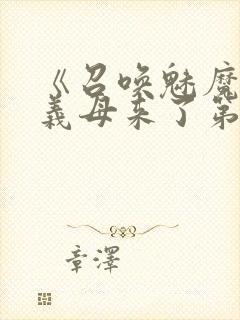 《召唤魅魔
義母来了第
章澤